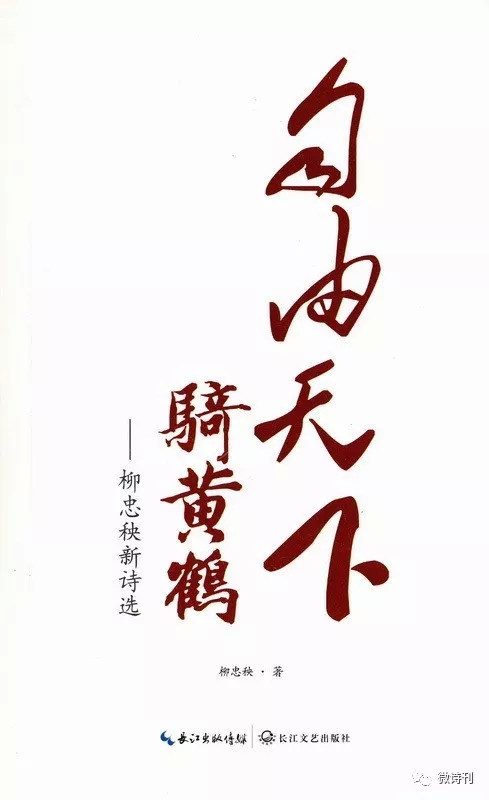 自由天下
騎黄鶴
——柳忠秧新诗选
柳忠秧·著
长江出版传媒 长江文艺出版社
微诗刊